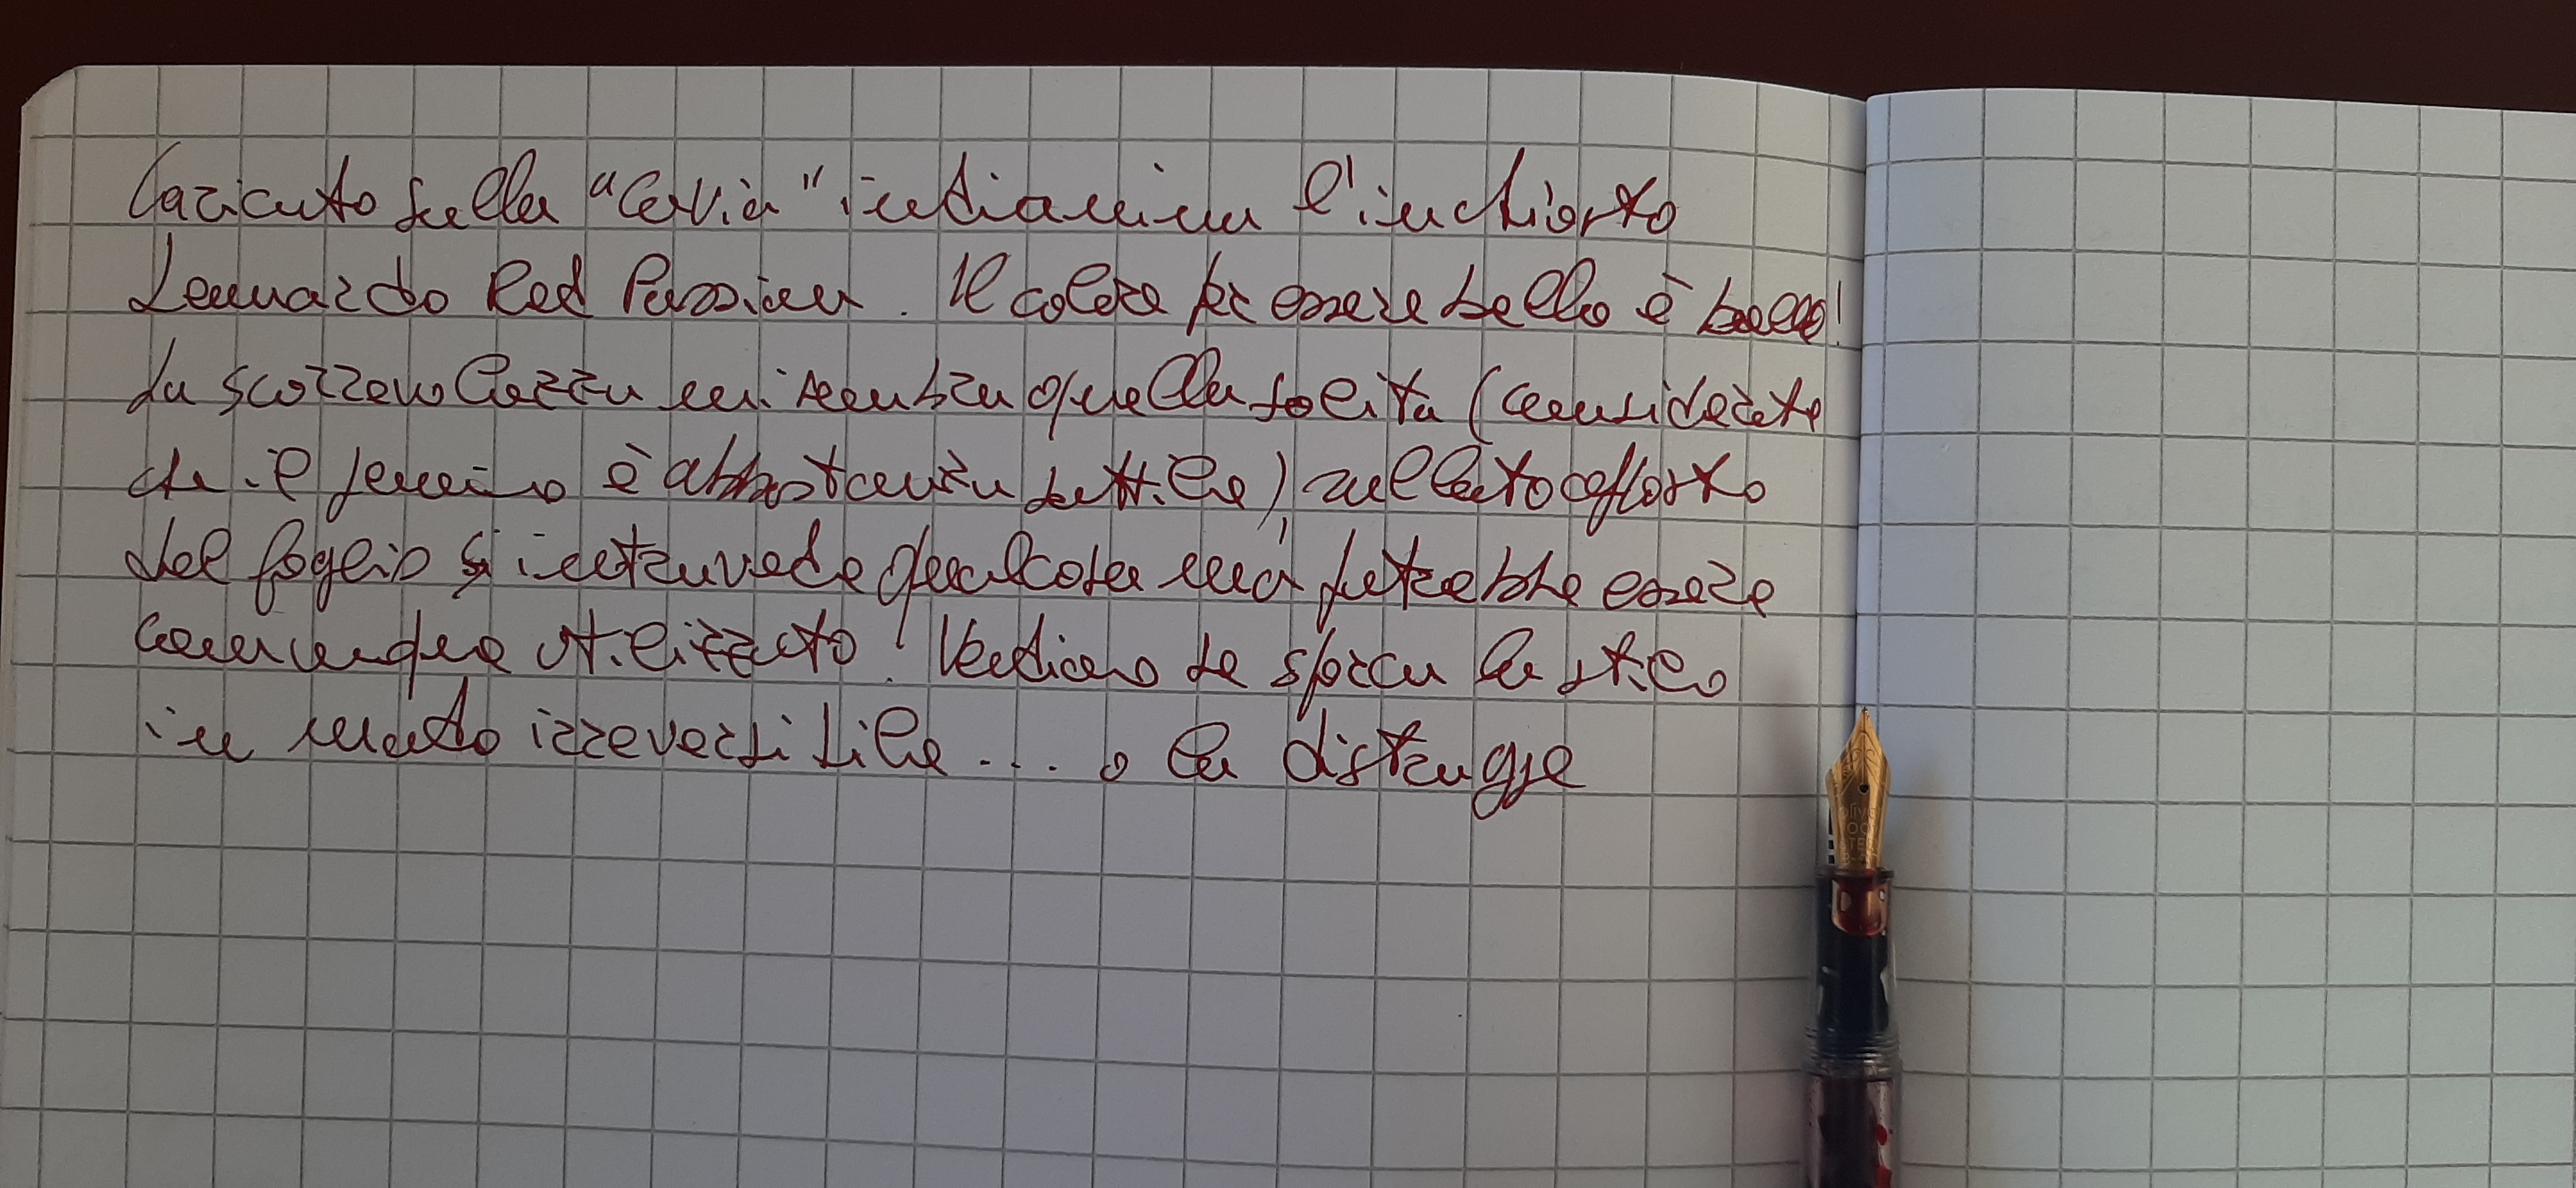 Caricato sulla "Cavia" indianina l'inchiostro
Leonardo Red Passion. Il colore per essere bello è bello!
La scorrevolezza mi sembra quella solita (considerate
che il pennino è abbastanza sottile) sul lato opposto
del foglio si intravvede qualcosa ma potrebbe essere
comunque utilizzato! Vediamo se sporca la stilo
in modo irreversibile.... o la distrugge